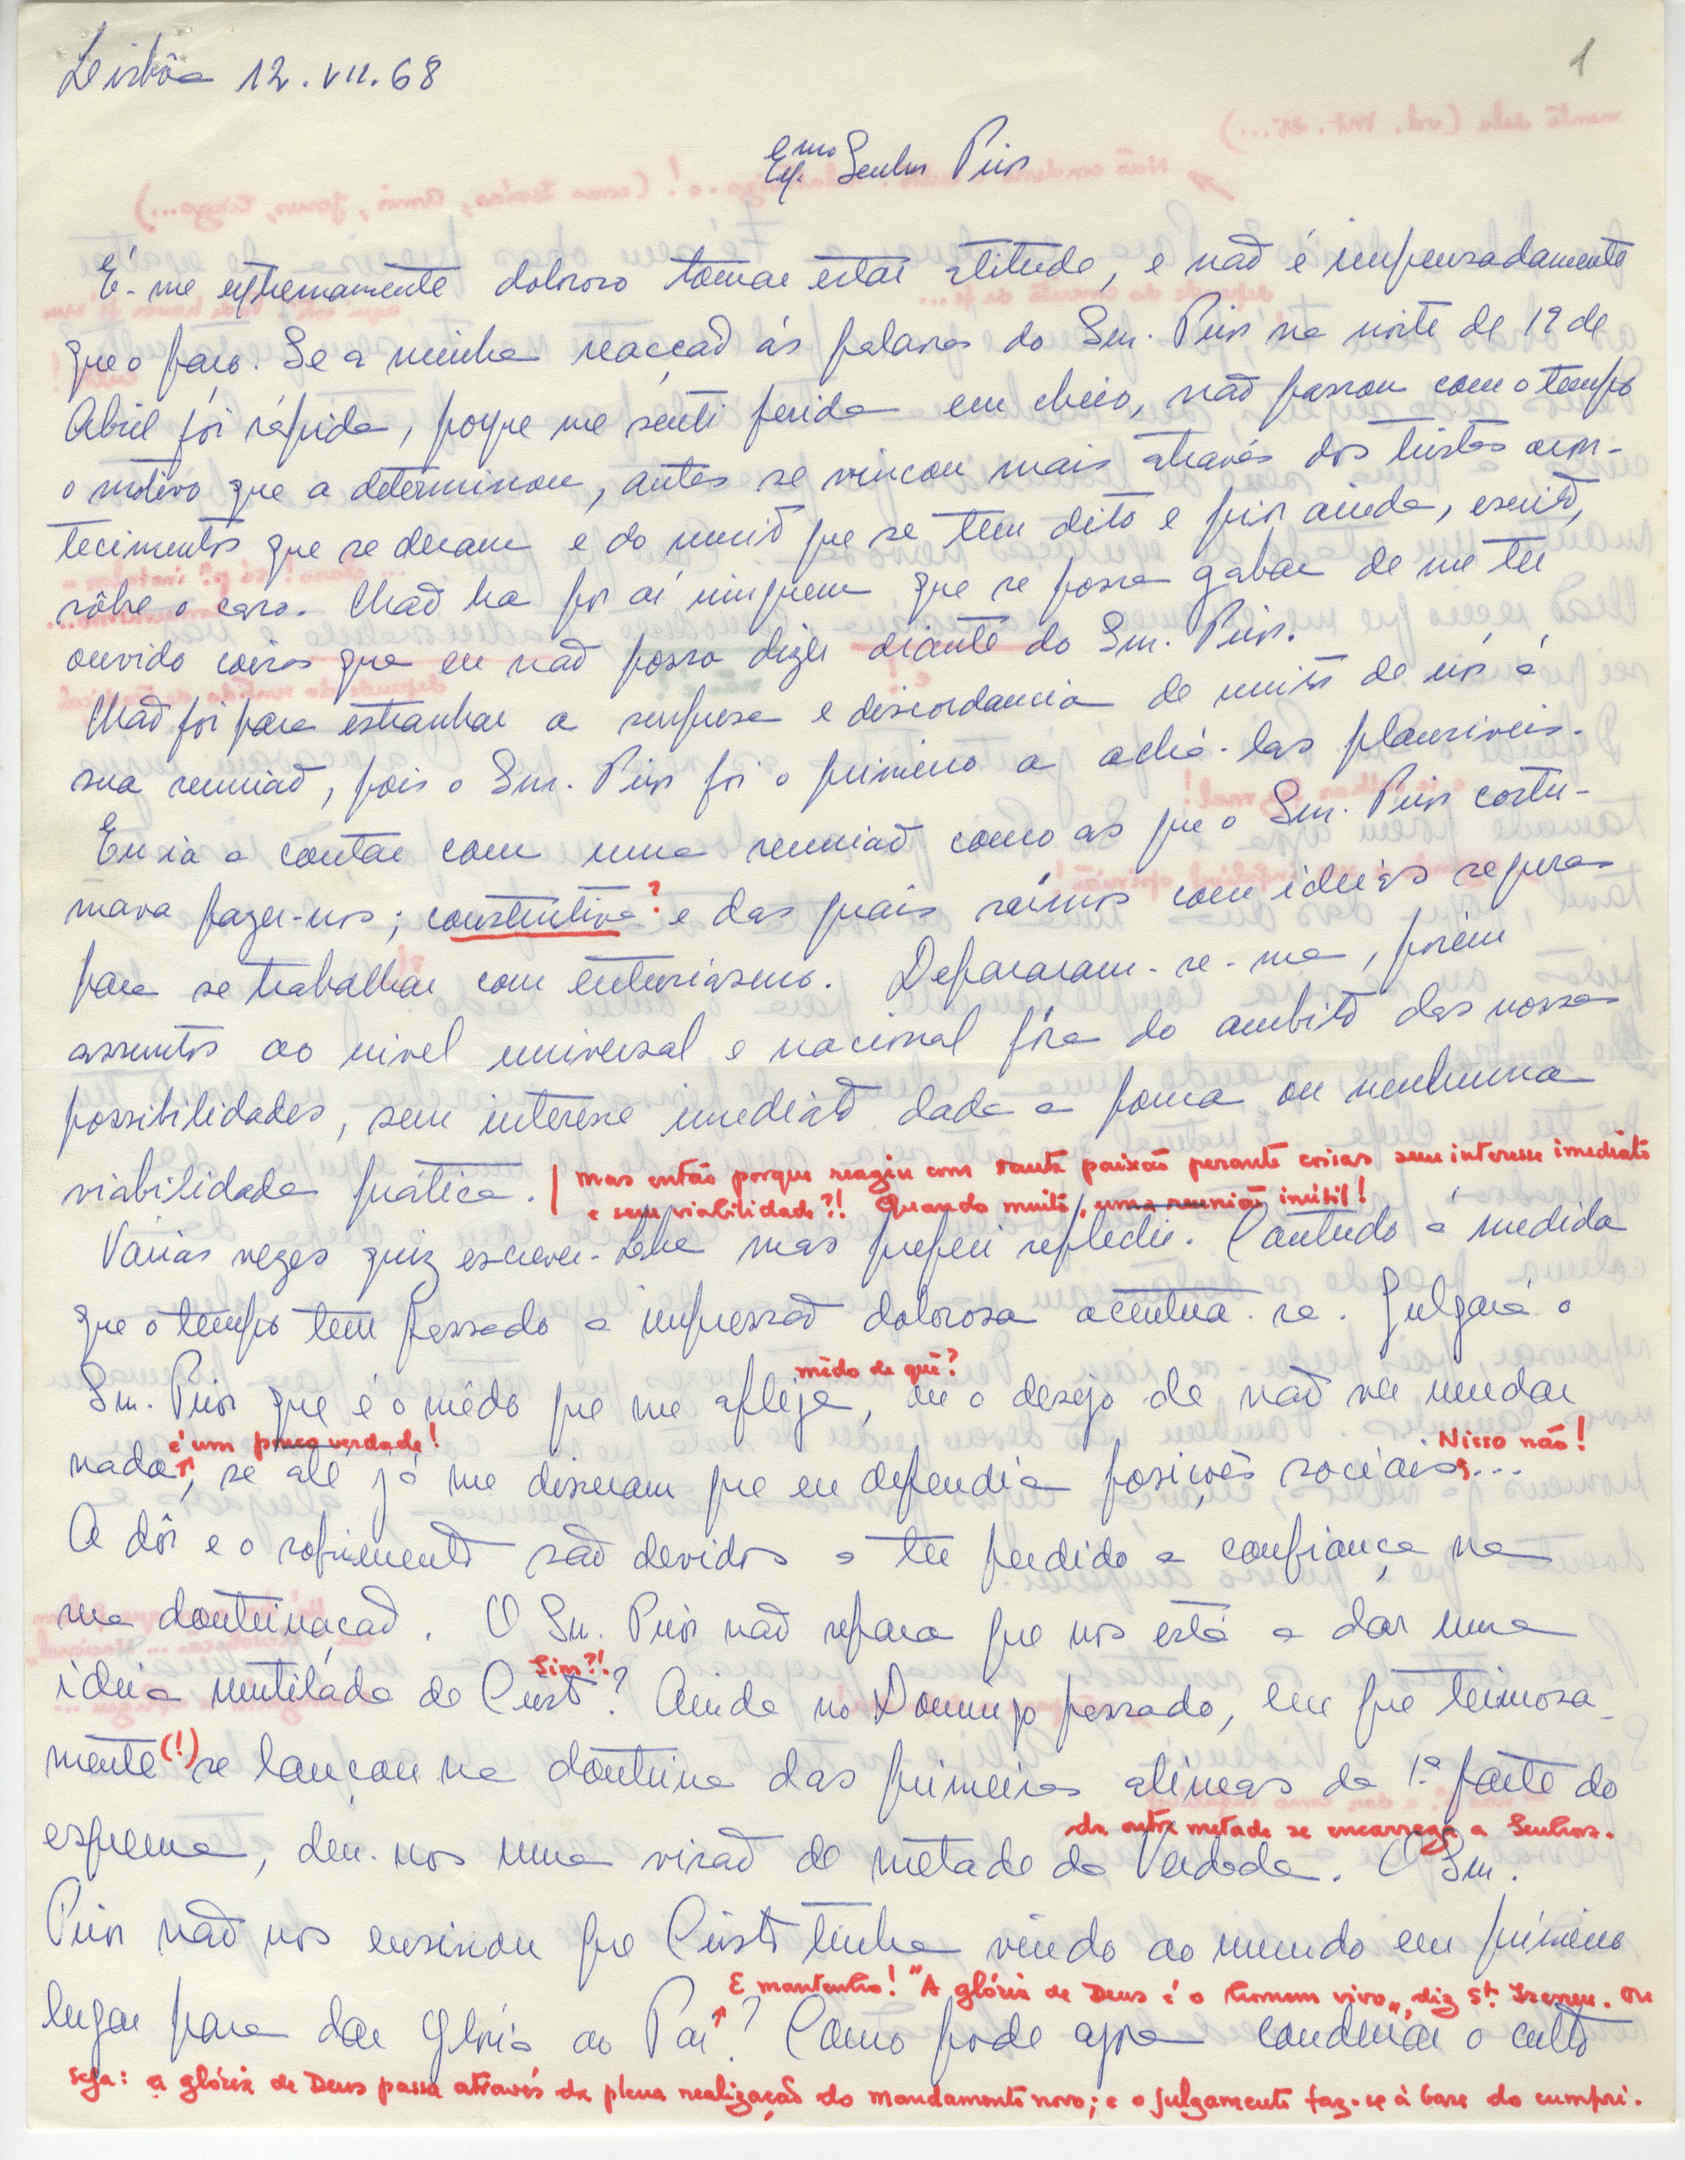 1
Lisbôa 12.VII.68
Exmo Senhor Prior
É-me extremamente doloroso tomar estar atitude, e não é impensadamente
que o faço. Se a minha reacção ás palavras do Snr. Prior na noite de 19 de
Abril foi rápida, porque me senti ferida em cheio, não passou com o tempo
o motivo que a determinou, antes se vincou mais através dos tristes acon-
tecimentos que se deram e do muito que se tem dito e pior ainda, escrito,
sôbre o caso. Não ha por aí ninguem que se possa gabar de me ter
ouvido coisas que eu não possa dizer diante do Snr. Prior.
Não foi para estranhar a surpresa e discordancia de muitos de nós á
sua reunião, pois o Snr. Prior foi o primeiro a achá-las plausiveis.
Eu ia a contar com uma reunião como as que o Snr. Prior costu-
mava fazer-nos; construtiva ? e das quais saímos com ideias seguras
para se trabalhar com entusiasmo. Depararam-se-me, porém
assuntos ao nivel universal e nacional fóra do ambito das nossas
possibilidades, sem interesse imediato dada a pouca ou nenhuma
viabilidade prática. | mas então porque reagiu com tanta paixão perante coisas sem interesse imediato
e sem viabilidade?! Quando muito, uma reunião inútil!
Várias vezes quiz escrever-lhe mas preferi reflectir. Contudo á medida
que o tempo tem passado a impressão dolorosa acentua-se. Julgará o
mêdo de quê?
Snr. Prior que é o mêdo que me aflige, ou o desejo de não ver mudar
é um pouco verdade! Nisso não!
nada, se até já me disseram que eu defendia posições sociais...
A dôr e o sofrimento são devidos a ter perdido a confiança na
sua doutrinação. O Sr. Prior não repara que nos está a dar uma
Sim?!
ideia mutilada de Cristo? Ainda no Domingo passado, em que teimosa-
mente (!) se lançou na doutrina das primeiras alíneas da 1.ª parte do
da outra metade se encarrega a Senhora.
esquema, deu-nos uma visão de metade da Verdade. O Snr.
Prior não nos ensinou que Cristo tinha vindo ao mundo em primeiro
E mantenho! "A glória de Deus é o homem vivo", diz St. Ireneu. Ou
lugar para dar glória ao Pai? Como pode agora condenar o culto
seja: a glória de Deus passa através da plena realização do mandamento novo; e o julgamento faz-se à base do cumpri-